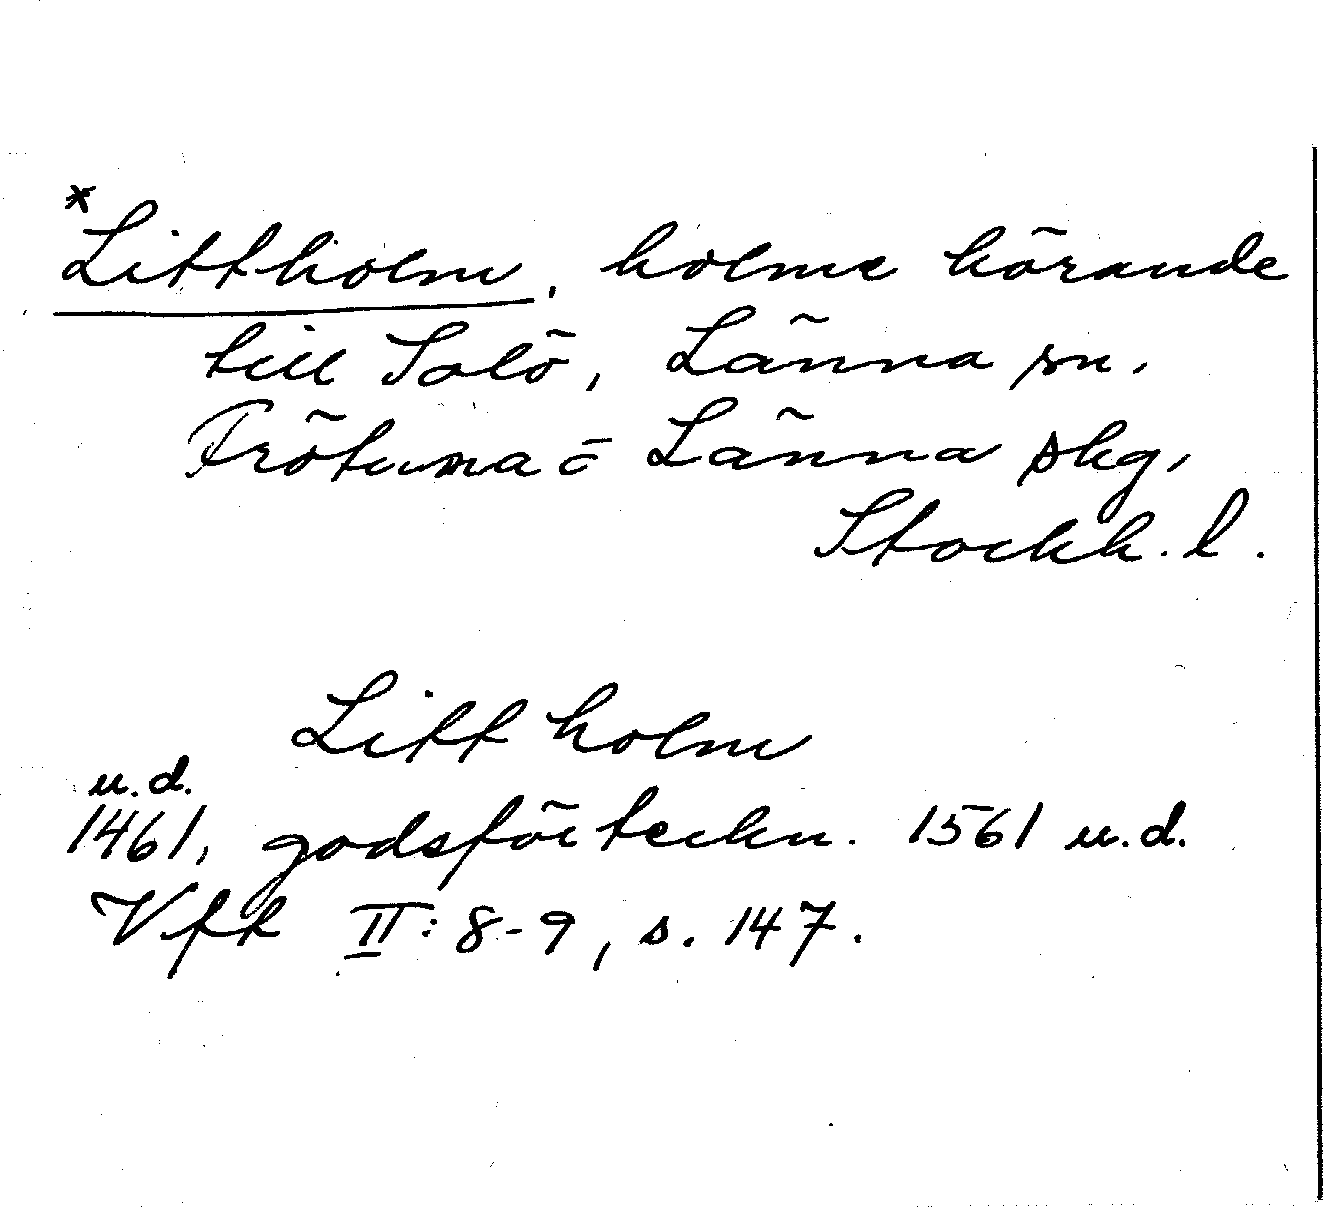 *Littholm, holme hörande
till Solö, Länna sn,
Frötuna o Länna skg,
Stockh. l.
Litt holm
u.d.
1461, godsförteckn. 1561 u.d.
Vfk II: 8-9, s. 147.